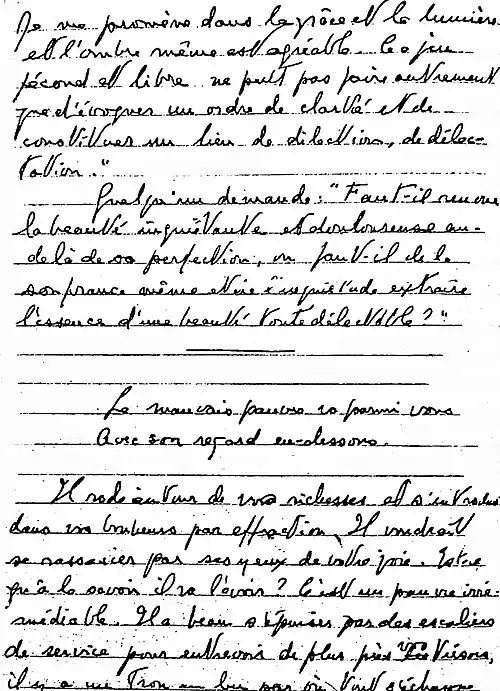 Je me promène dans la grâce et la lumière
et l'ombre même est agréable. Ce jeu
fécond et libre ne peut pas faire autrement
que d'évoquer un ordre de clarté et de
constituer un lieu de dilection, de délec-
tation."
Quelqu'un demande : "Faut-il
la beauté inquiétante et douloureuse au-
delà de sa perfection, ou faut-il de la
souffrance même et de l'inquiétude extraire
l'essence d'une beauté toute délectable ?"
Le mauvais pauvre va parmi vous
Avec son regard en-dessous.
Il rode autour de vos richesses et s'introduit
dans vos bonheurs par effraction. Il voudrait
se rassasier par ses yeux de votre joie. Est-ce
qu'à la savoir il va l'avoir ? C'est un pauvre irré-
médiable. Il a beau s'épuiser par des escaliers
de service pour entrevoir de plus près vos trésors,
il y a un trou en lui par où tout s'échappe